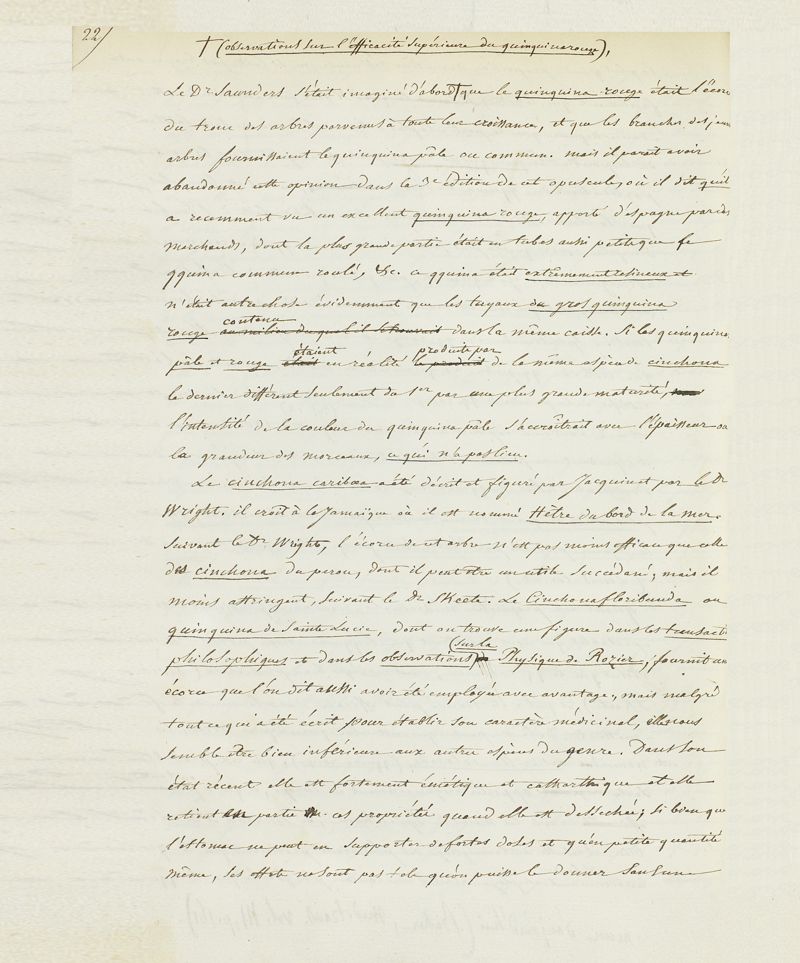 22/
† (observations sur l'efficacité supérieure du quinquina rouge),
Le Dr Saunders s'était imaginé d'abord † que le quinquina rouge était l'écorc
du tronc des arbres parvenus à toute leur croissance, et que les branches des jeun
arbres fournissaient le quinquina pâle ou commun. mais il parait avoir
abandonné cette opinion dans la 3e édition de cet opuscule, où il dit qu'il
a recemment vu un excellent quinquina rouge, apporté d'espagne par des
marchands, dont la plus grande partie était en tubes aussi petits que le
qquina commun roulé, &c. ce qquina était extrêmement resineux et
n'était autre chose évidemment que les tuyaux du gros quinquina
contenu
rouge au milieu duquel il se trouvait dans la même caisse. Si les quinquina
étaient produits par
pâle et rouge était en réalité le produit de la même espèce de cinchona
le dernier différent seulement du 1er par une plus grande maturité,
l'intensité de la couleur du quinquina pâle s'accroîtrait avec l'épaisseur ou
la grandeur des morceaux, ce qui n'a pas lieu.
Le cinchona caribœa a été décrit et figuré par Jacquin et par le Dr
Wright. il croît à la Jamaïque où il est nommé Hêtre du bord de la mer.
suivant le Dr Wright, l'écorce de cet arbre n'est pas moins efficace que celle
des cinchona du perou, dont il peut être un utile succédané; mais il
moins attringent, suivant le Dr Skeete. Le Cinchona floribunda ou
quinquina de Sainte Lucie, dont on trouve une figure dans les transacti
philosophiques et dans les observations
(sur la
Physique de Rozier, fournit un
écorce que l'on dit aussi avoir été employée avec avantage, mais malgré
tout ce qui a été écrit pour établir son caractère médicinal, elle nous
semble être bien inférieure aux autres espèces du genre. Dans son
état récent elle est fortement émétique et cathartique et elle
retient en partie ces propriétés quand elle est dessechée; si bien que
l'estomac ne peut en supporter de fortes doses et qu'en petite quantité
même, ses effets ne sont pas tels qu'on puisse le donner sans une